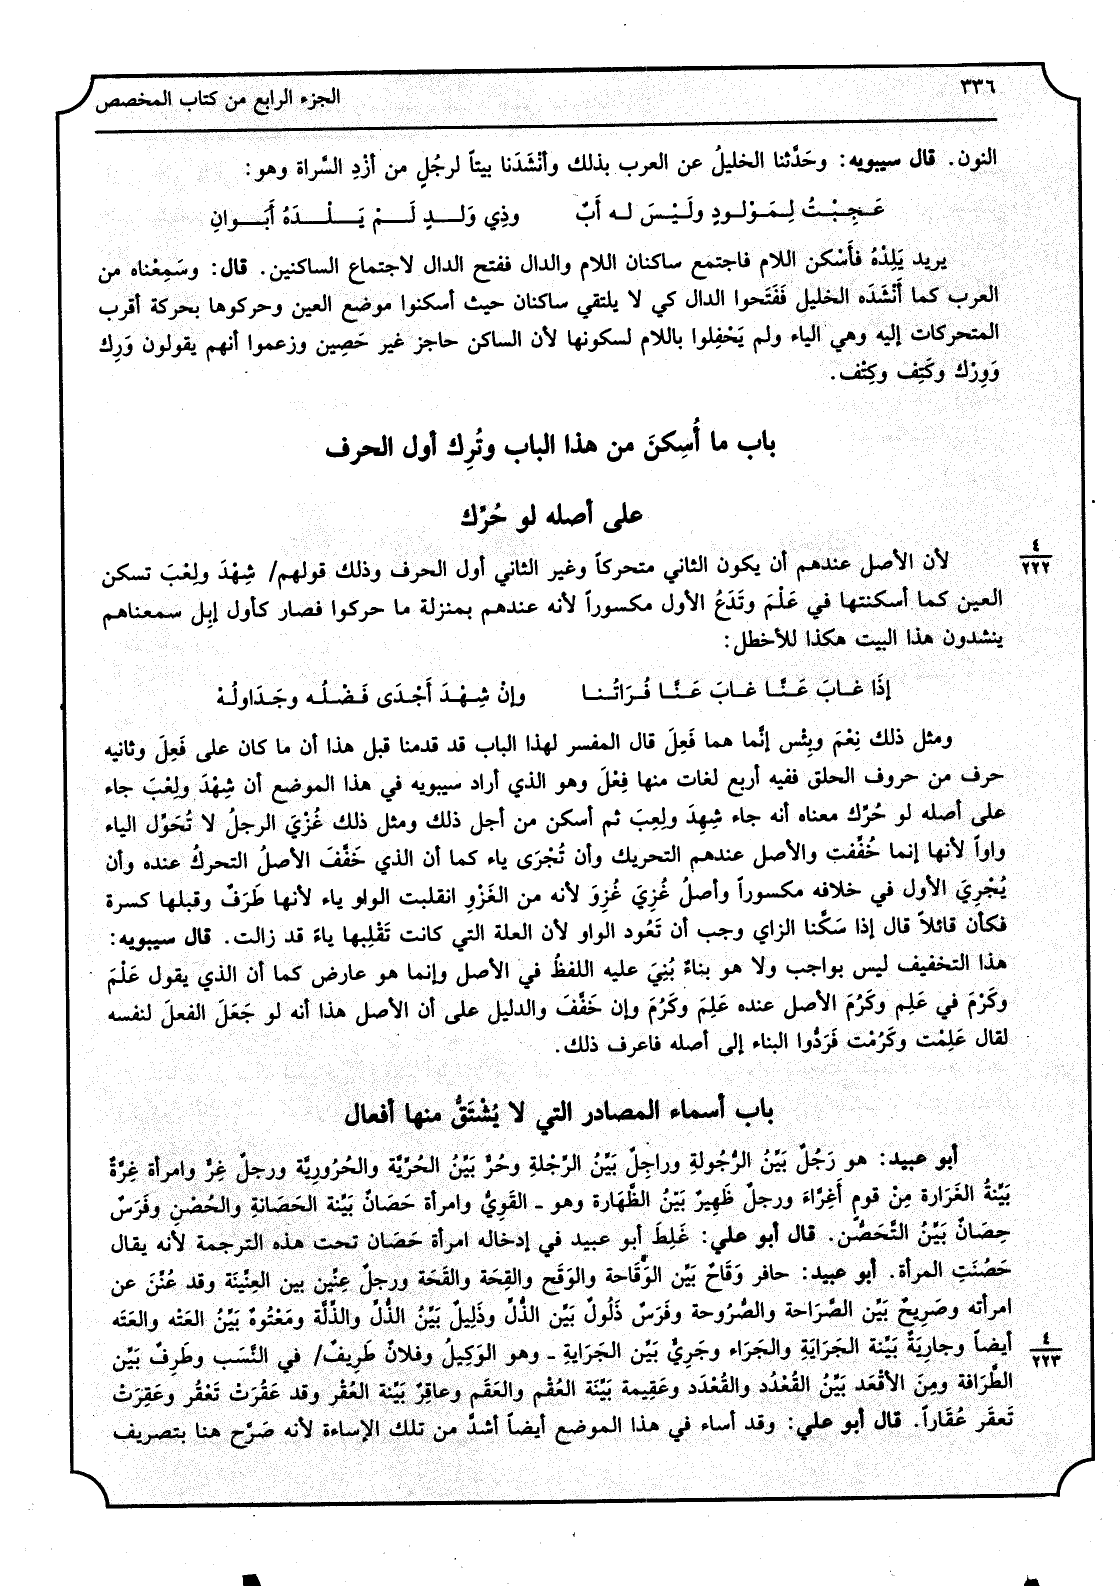 ٣٣٦
الجزء الرابع من كتاب المخصص
النون. قال سيبويه: وحَدَّثنا الخليلُ عن العرب بذلك وأنْشَدَنا بيتاً لرجُلٍ من أزْدِ السَّراة وهو:
عَـجِـبْـتُ لِـمَـوْلـودٍ ولَيْـسَ لـه أَبٌ وذِي وَلَـــدٍ لَـــمْ يَـــلْـــدَهُ أَبَـــوانِ
يريد يَلِدْهُ فأَسْكن اللام فاجتمع ساكنان اللام والدال ففتح الدال لاجتماع الساكنين. قال: وسَمِعْناه من
العرب كما أَنْشَدَه الخليل فَفَتَحوا الدال كي لا يلتقي ساكنان حيث أسكنوا موضع العين وحركوها بحركة أقرب
المتحركات إليه وهي الياء ولم يَحْفِلوا باللام لسكونها لأن الساكن حاجز غير حَصِين وزعموا أنهم يقولون وَرِك
وَوِرْك وكَتِف وكِتْف.
باب ما أُسِكنَ من هذا الباب وتُرِك أول الحرف
على أصله لو حُرِّك
٤
٢٢٢
لأن الأصل عندهم أن يكون الثاني متحركاً وغير الثاني أول الحرف وذلك قولهم/ شِهْدَ ولِعْبَ تسكن
العين كما أسكنتها في عَلْمَ وتَدَعُ الأول مكسوراً لأنه عندهم بمنزلة ما حركوا فصار كأول إبِل سمعناهم
ينشدون هذا البيت هكذا للأخطل:
إذَا غـابَ عَـنَّـا غـابَ عَـنَّـا فُـرَاتُـنـا وإنْ شِـهْـدَ أَجْـدَى فَـضْـلُـه وجَـدَاولُـهْ
ومثل ذلك نِعْمَ وبِئْس إنَّما هما فَعِلَ قال المفسر لهذا الباب قد قدمنا قبل هذا أن ما كان على فَعِلَ وثانيه
حرف من حروف الحلق ففيه أربع لغات منها فِعْلَ وهو الذي أراد سيبويه في هذا الموضع أن شِهْدَ ولِعْبَ جاء
على أصله لو حُرِّك معناه أنه جاء شِهِدَ ولِعِبَ ثم أسكن من أجل ذلك ومثل ذلك غُزْيَ الرجلُ لا تُحَوِّل الياء
واواً لأنها إنما خُفِّفت والأصل عندهم التحريك وأن تُجْرَى ياء كما أن الذي خَفَّفَ الأصلُ التحركُ عنده وأن
يُجْرِيَ الأول في خلافه مكسوراً وأصلُ غُزِيَ غُزِوَ لأنه من الغَزْوِ انقلبت الواو ياء لأنها طَرَفٌ وقبلها كسرة
فكأن قائلاً قال إذا سَكَّنا الزاي وجب أن تَعُود الواو لأن العلة التي كانت تَقْلِبها ياءً قد زالت. قال سيبويه:
هذا التخفيف ليس بواجب ولا هو بناءٌ بُنِيَ عليه اللفظُ في الأصل وإنما هو عارض كما أن الذي يقول عَلْمَ
وكَرْمَ في عَلِم وكَرُمَ الأصل عنده عَلِمَ وكَرُمَ وإن خَفَّفَ والدليل على أن الأصل هذا أنه لو جَعَلَ الفعلَ لنفسه
لقال عَلِمْت وكَرُمْت فَرَدُّوا البناء إلى أصله فاعرف ذلك.
باب أسماء المصادر التي لا يُشْتَقُّ منها أفعال
أبو عبيد: هو رَجُلٌ بَيِّنُ الرُّجُولةِ وراجِلٌ بَيِّنُ الرِّجْلةِ وحُرٌّ بَيِّنُ الحُرِّيَّة والحُرُورِيَّة ورجلٌ غِرٌّ وامرأة غِرَّةٌ
بَيِّنةُ الغَرَارة مِنْ قوم أَغِرَّاءَ ورجلٌ ظَهِيرٌ بَيِّنُ الظَّهَارة وهو ـ القَوِيُّ وامرأة حَصَانٌ بَيِّنة الحَصَانةِ والحُصْنِ وفَرَسٌ
حِصَانٌ بَيِّنُ التَّحَصُّن. قال أبو علي: غَلِطَ أبو عبيد في إدخاله امرأة حَصَان تحت هذه الترجمة لأنه يقال
حَصُنَتِ المرأة. أبو عبيد: حافر وَقَاحٌ بَيِّن الوَقَاحة والوَقَح والقِحَة والقَحَة ورجلٌ عِنِّين بين العِنِّينَة وقد عُنِّنَ عن
امرأته وصَرِيحٌ بَيِّن الصَّراحة والصُّرُوحة وفَرَسٌ ذَلُولٌ بَيِّن الذُّلِّ وذَلِيلٌ بَيِّنُ الذُّلِّ والذِّلَّة ومَعْتُوهٌ بَيِّنُ العَتْه والعَتَه
٤
٢٢٣
أيضاً وجارِيَةٌ بَيِّنة الجَرَايَةِ والجَرَاء وجَرِيٌّ بَيِّن الجَرَايةِ ـ وهو الوَكِيلُ وفلانٌ طَرِيفٌ/ في النَّسَب وطَرِفٌ بَيِّن
الطَّرَافة ومِنَ الأقْعَد بَيِّنُ القُعْدُد والقُعْدَد وعَقِيمة بَيِّنَة العُقْم والعَقَم وعاقِرٌ بَيِّنة العُقْر وقد عَقُرَتْ تَعْقُر وعَقِرَتْ
تَعقَر عُقَاراً. قال أبو علي: وقد أساء في هذا الموضع أيضاً أشدَّ من تلك الإساءة لأنه صَرَّح هنا بتصريف